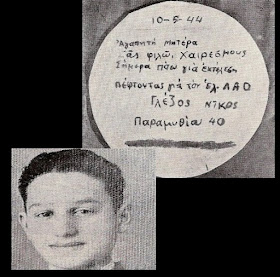 10-5-44
Ἀγαπητή μητέρα
Σᾶς φιλῶ, χαιρετισμούς
Σήμερα πάω γιά ἐκτέλεση
πέφτοντας γιά τόν ἑλ. ΛΑΟ
ΓΛέΖος Νῖκος
Παραμυθίας 40